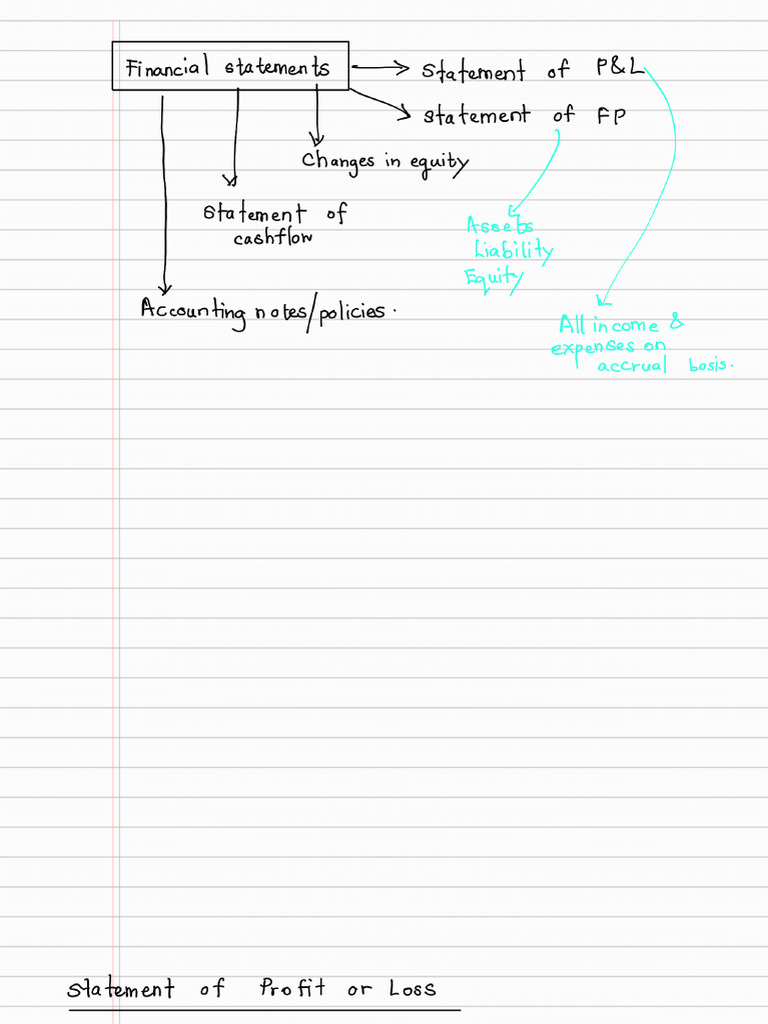 Financial statements
Statement of P&L
Statement of FP
Changes in equity
Statement of
cashflow
Assets
Liability
Equity
Accounting notes/policies.
All income &
expenses on
accrual basis.
Statement of Profit or Loss